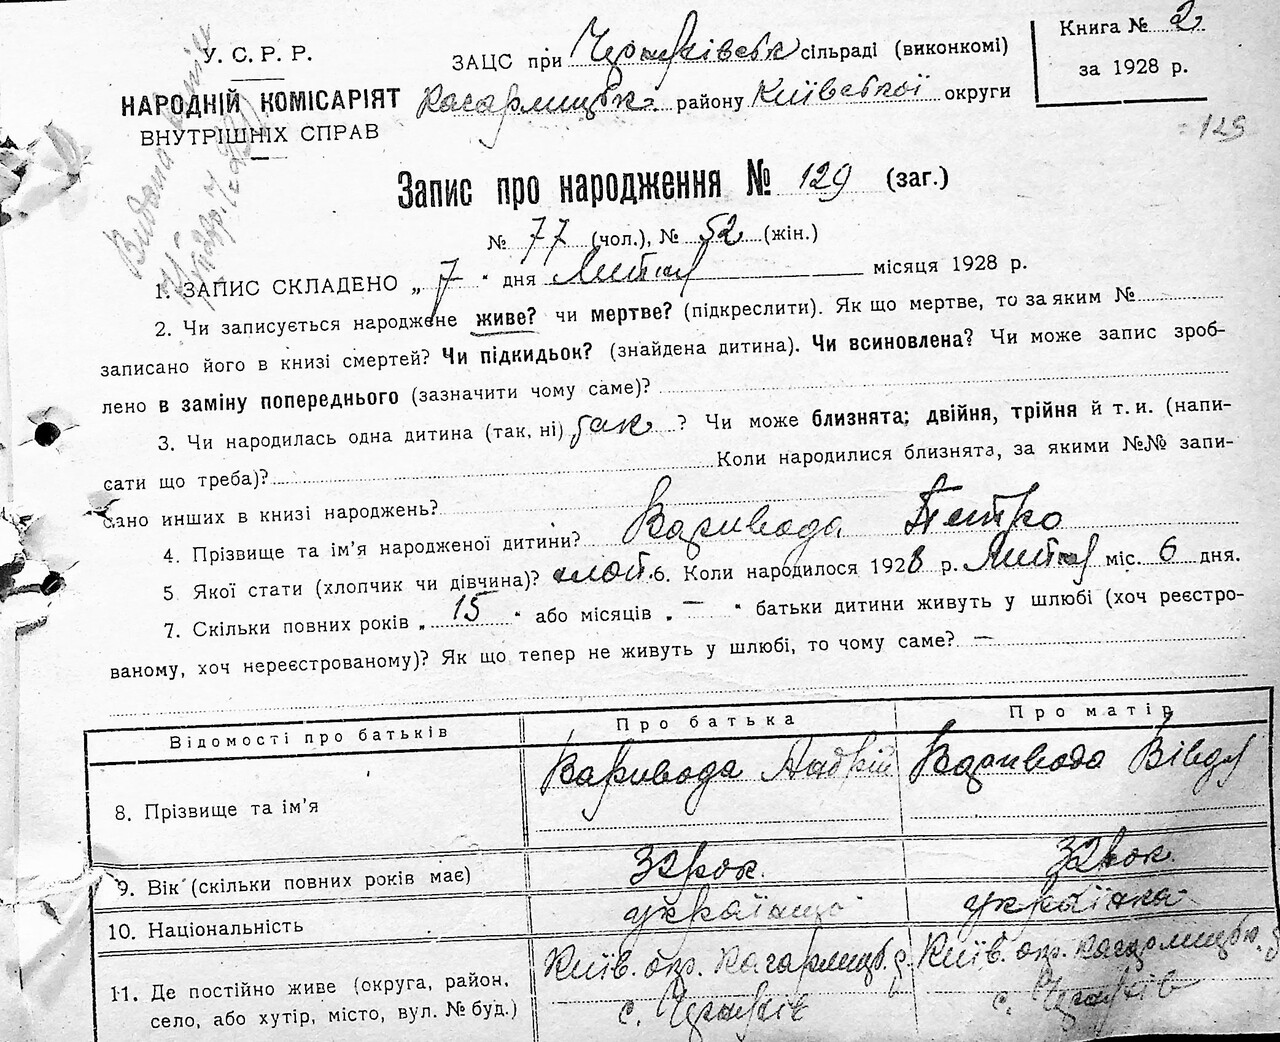 У. С. Р. Р.
НАРОДНІЙ КОМІСАРІЯТ
ВНУТРІШНІХ СПРАВ
ЗАЦС при сільраді (виконкомі)
Кагарлицьк. району Київської округи
Книга № 2
за 1928 р.
129
Видано
Запис про народження № 129 (заг.)
№ 77 (чол.), № 52 (жін.)
1. ЗАПИС СКЛАДЕНО „ 7 “ дня місяця 1928 р.
2. Чи записується народжене живе? чи мертве? (підкреслити). Як що мертве, то за яким №
записано його в книзі смертей? Чи підкидьок? (знайдена дитина). Чи всиновлена? Чи може запис зроб-
лено в заміну попереднього (зазначити чому саме)?
3. Чи народилась одна дитина (так, ні) так ? Чи може близнята; двійня, трійня й т. и. (напи-
сати що треба)? Коли народилися близнята, за якими №№ запи-
сано инших в книзі народжень?
4. Прізвище та ім’я народженої дитини? Каривода Петро
5. Якої стати (хлопчик чи дівчина)? 6. Коли народилося 1928 р. міс. 6 дня.
7. Скільки повних років „ 15 “ або місяців „ — “ батьки дитини живуть у шлюбі (хоч реєстро-
ваному, хоч нереєстрованому)? Як що тепер не живуть у шлюбі, то чому саме? —
Відомості про батьків Про батька Про матір
8. Прізвище та ім’я Каривода Андрій Каривода
9. Вік (скільки повних років має) 32 рок. 32 рок.
10. Національність українець українка
11. Де постійно живе (округа, район,
село, або хутір, місто, вул. № буд.)
Київ. окр. Кагарлицьк. р.
с.
Київ. окр. Кагарлицьк. р.
с.